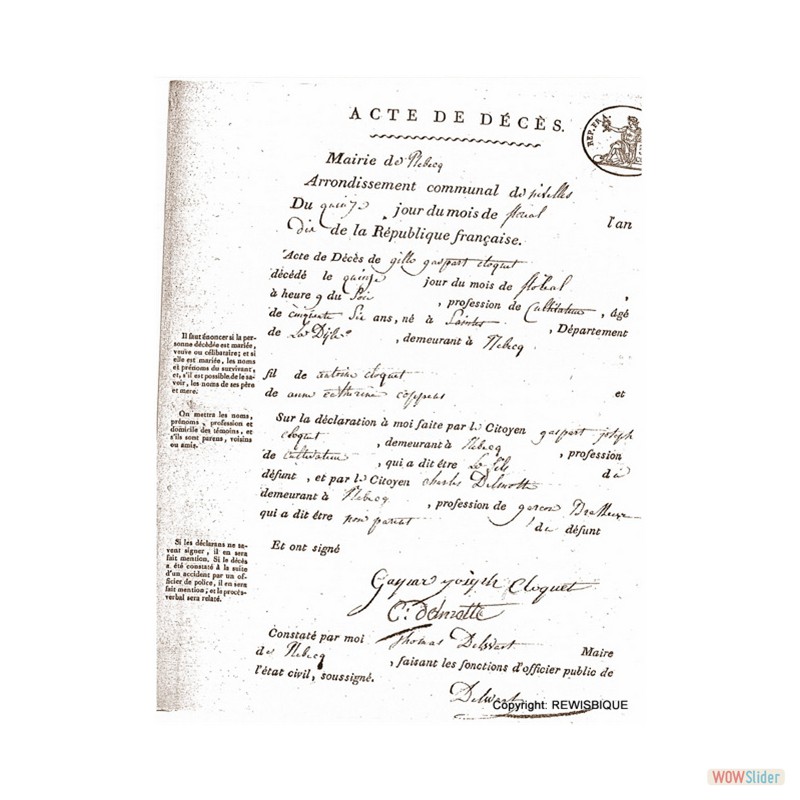 ACTE DE DÉCÈS.
REP. FRA
Mairie de Rebecq
Arrondissement communal de nivelles
Du quinze jour du mois de floréal l'an
dix de la République française.
Acte de Décès de gille gaspart cloquet
décédé le quinze jour du mois de floréal ,
à heure 9 du Soir , profession de Cultivateur , âgé
de cinquante Six ans, né à Saintes , Département
de La Dyle , demeurant à Rebecq
fil de antoine cloquet et
de anne catherine coppens
Sur la déclaration à moi faite par le Citoyen gaspart joseph
cloquet , demeurant à Rebecq , profession
de cultivateur , qui a dit être Le fils du
défunt , et par le Citoyen charles Delmotte
demeurant à Rebecq , profession de garcon
qui a dit être non parent du défunt
Et ont signé
Gaspar joseph Cloquet
C: delmotte
Constaté par moi Thomas Delwart Maire
de Rebecq , faisant les fonctions d'officier public de
l'état civil, soussigné.
Delwart
Il faut énoncer si la per-
sonne décédée est mariée,
veuve ou célibataire; et si
elle est mariée, les noms
et prénoms du survivant,
et, s'il est possible de le sa-
voir, les noms de ses père
et mere.
On mettra les noms,
prénoms, profession et
domicile des témoins, et
s'ils sont parens, voisins
ou amis.
Si les déclarans ne sa-
vent signer, il en sera
fait mention. Si le décès
a été constaté à la suite
d'un accident par un of-
ficier de police, il en sera
fait mention; et le procès-
verbal sera relaté.
Copyright: REWISBIQUE
WOWSlider